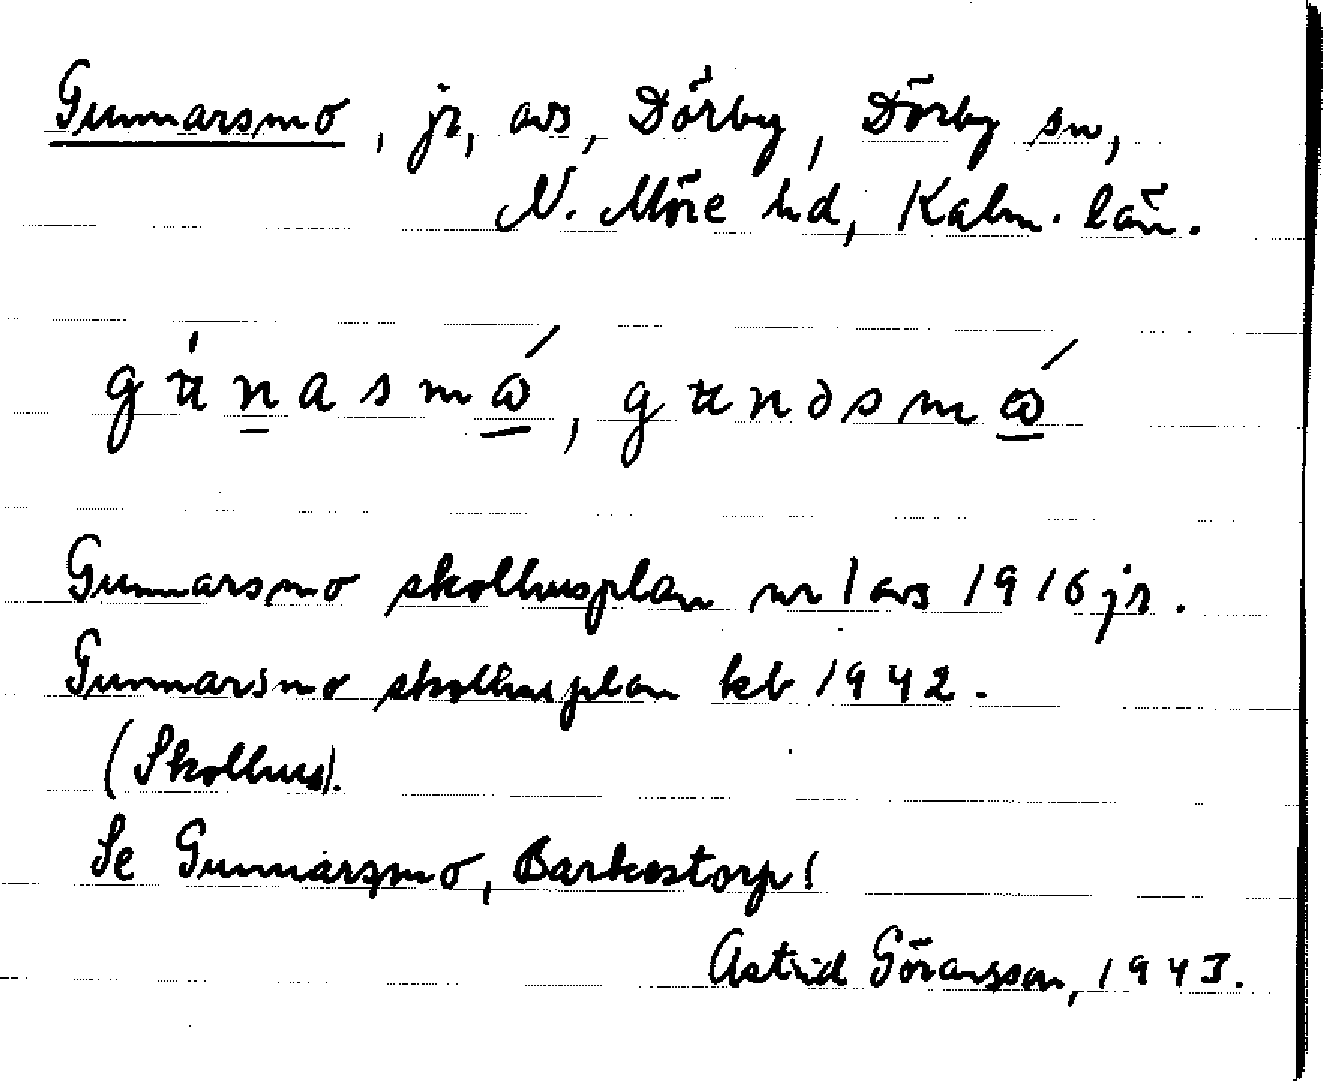 Gunnarsmo, jr, avs, Dörby, Dörby sn,
N. Möre hd, Kalm. län.
Gunnarsmo skolhusplan nr 1 avs 1916 jr.
Gunnarsmo skolhusplan kb 1942.
(Skolhus).
Se Gunnarsmo, Barkestorp!
Astrid Göransson, 1943.